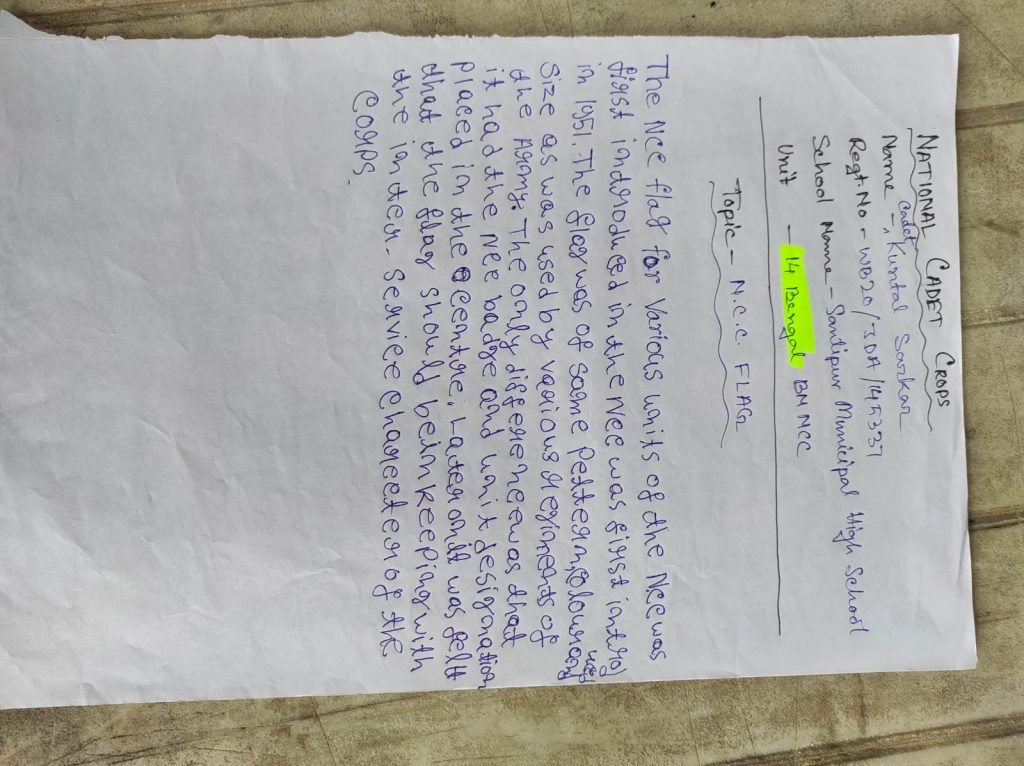 NATIONAL CADET CROPS
Name - Cadet, Kuntal Sarkar
Regt. No - WB20/JDA/145337
School Name - Santipur Municipal High School
Unit - 14 Bengal BN NCC
Topic - N.C.C. FLAG
The Ncc flag for various units of the Ncc was
first introduced in the Ncc was first introd
in 1951. The flag was of same pettern, colour and
size as was used by various regiments of
the Army. The only difference was that
it had the Ncc badge and unit designation
placed in the centre. Later on it was felt
that the flag should be in keeping with
the inter-service charecter of the
Corps.